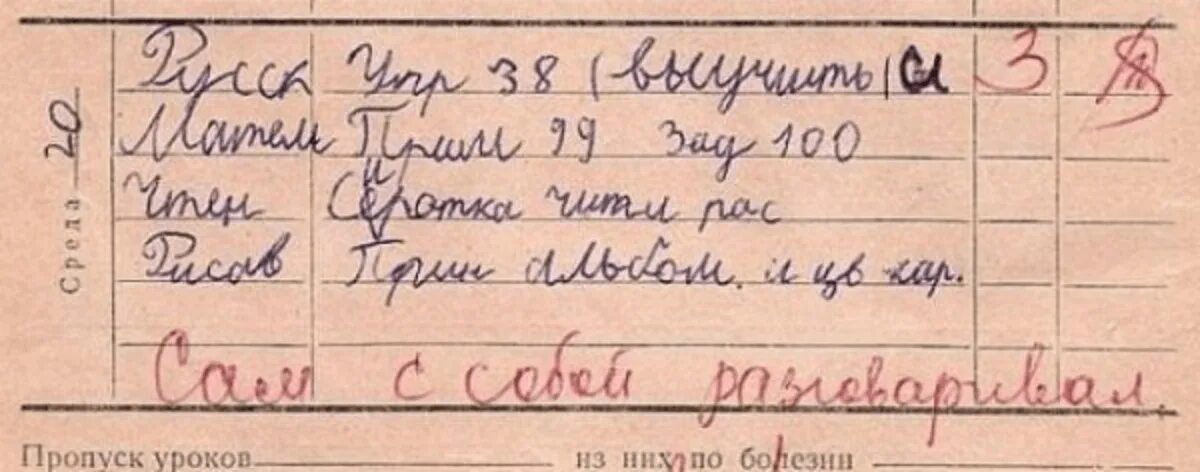 Среда 20
Русск Упр 38 (выучить) 3
Матем Прим 99 Зад 100
Чтен Сиротка читл рас
Рисав Прин альбом. и цв кар.
Сам с собой разговаривал.
Пропуск уроков из них по болезни